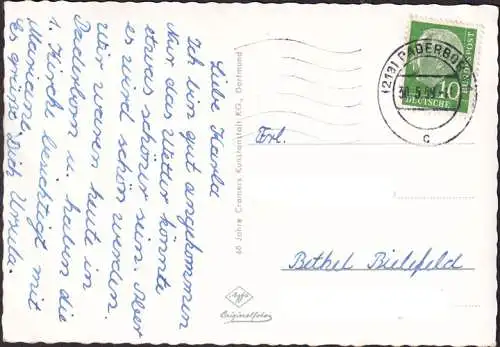 Liebe Karla
Ich bin gut angekommen
Nur das Wetter könnte
etwas schöner sein. Aber
es wird schön werden.
Wir waren heute in
Paderborn u. haben die
1. Kirche besichtigt mit
Mariane.
Es grüßt Dich Ursula.
60 Jahre Cramers Kunstanstalt KG., Dortmund
Agfa
Originalfoto
DEUTSCHE
10
(21a) PADERBO
c
Frl.
Bethel Bielefeld